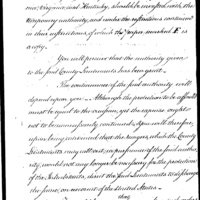 ern Virginia and Kentucky, should be invested with the
temporary authority, and under the restrictions contained
in their instructions, of which the paper marked E is
a copy.
You will perceive that the authority given
to the said County Lieutenants has been quiet.
The continuance of the said authority will
depend upon you — Although the protection to be afforded
must be equal to the occasion, yet the expense ought
not to be unnecessarily continued. You will therefore
upon being convinced that the rangers, which the County
Lieutenants may call out in pursuance of the said author-
ity, would not any longer be necessary for the protection
of the Inhabitants, direct the said Lieutenants to discharge
the same, on account of the United States.